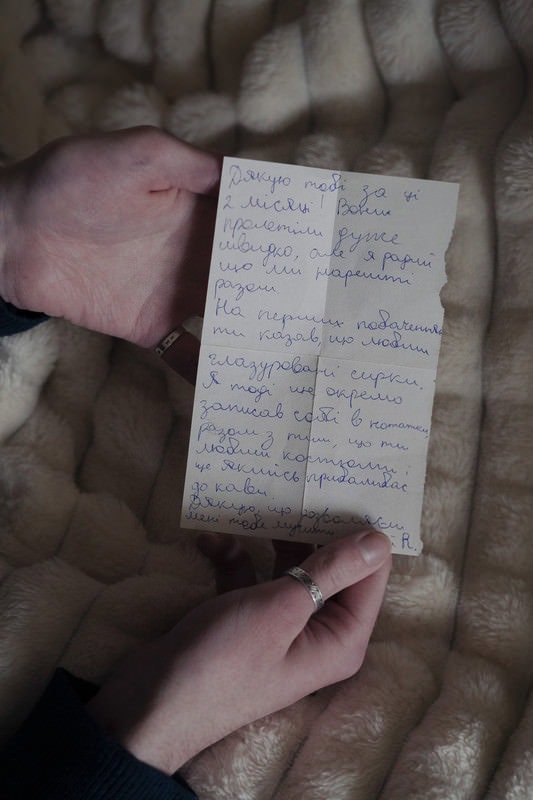 Дякую тобі за ці
2 місяці! Вони
пролетіли дуже
швидко, але я радий
що ми нарешті
разом.
На перших побаченнях
ти казав, що любиш
глазуровані сирки.
Я тоді це окремо
записав собі в нотатки,
разом з тим, що ти
любиш костюми і
ще якийсь прибамбас
до кави.
Дякую, що дозволяєш
мені тебе
R.